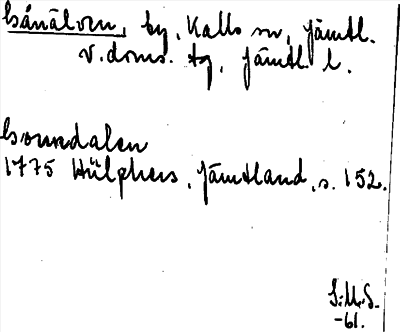 Gånälven, by, Kalls sn, Jämtl.
v. doms. tg, Jämtl. l.
Gourdalen
1775 Hülphers, Jämtland, s. 152.
S.M.S.
-61.